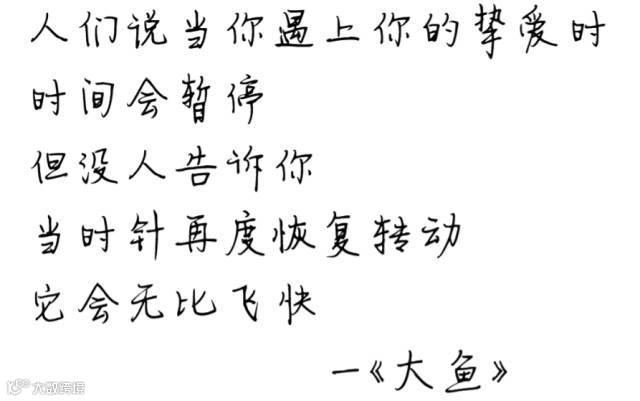 人们说当你遇上你的挚爱时
时间会暂停
但没人告诉你
当时针再度恢复转动
它会无比飞快
—《大鱼》
大数跨境